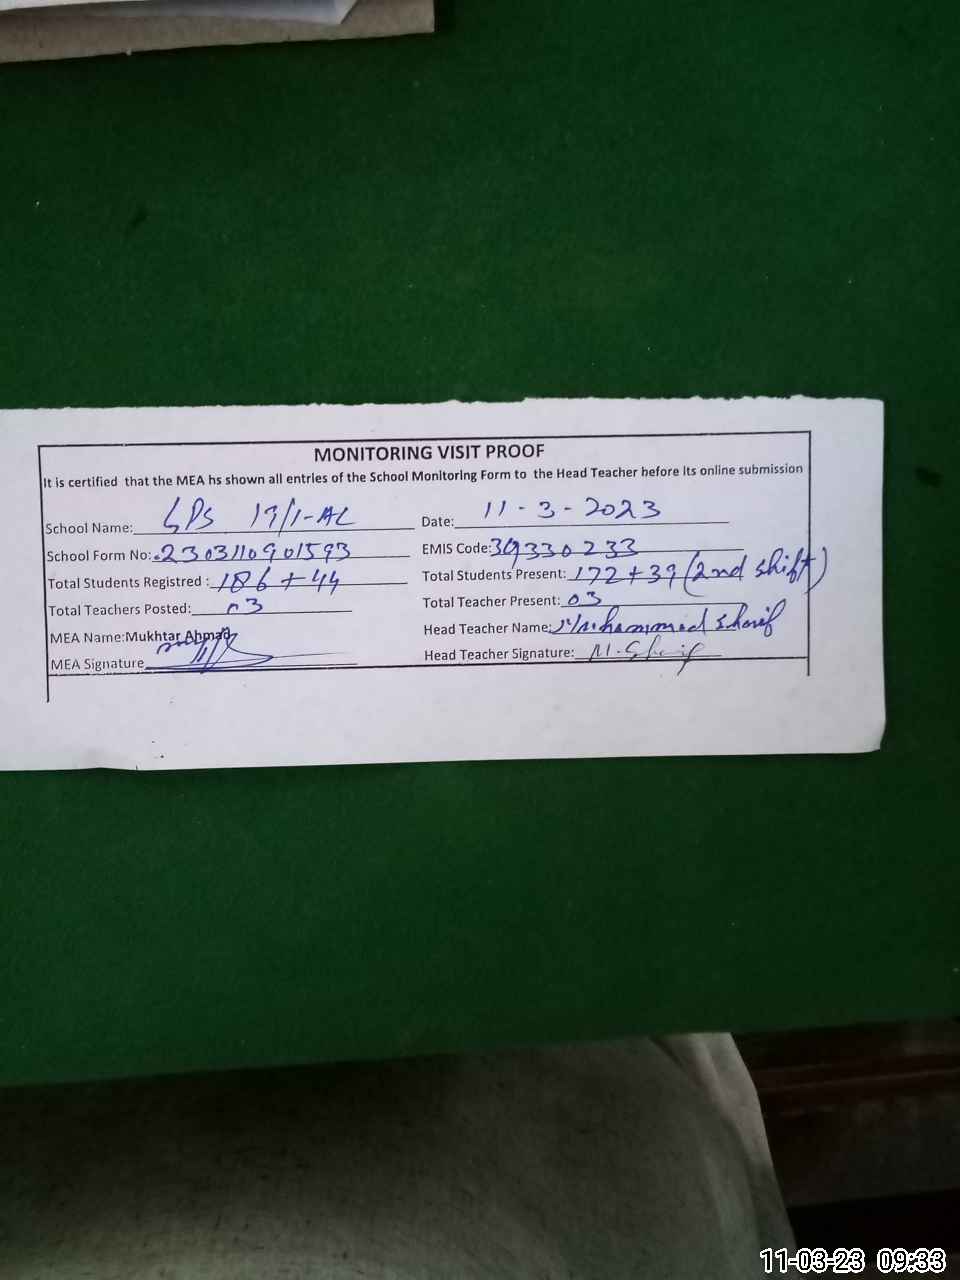 MONITORING VISIT PROOF
It is certified that the MEA hs shown all entries of the School Monitoring Form to the Head Teacher before its online submission
School Name: GPS 19/1-AL Date: 11-3-2023
School Form No: 2303110901593 EMIS Code: 39330233
Total Students Registred : 186+44 Total Students Present: 172+39 (2nd shift)
Total Teachers Posted: 03 Total Teacher Present: 03
MEA Name: Mukhtar Ahmad Head Teacher Name: Muhammad Sharif
MEA Signature Head Teacher Signature: M. Sharif
11-03-23 09:33